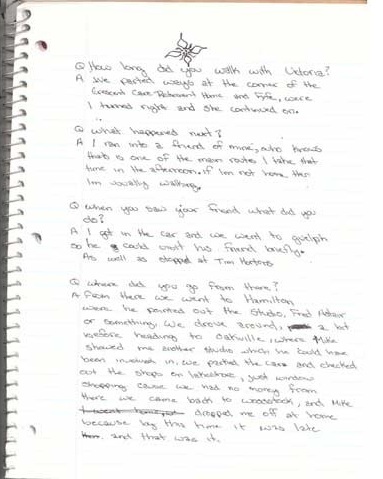 Q How long did you walk with Victoria?
A We parted ways at the corner of the
Crescent Care Retirement Home and Fyfe, were
I turned right and she continued on.
Q What happened next?
A I ran into a friend of mine, who knows
thats is one of the main routes I take that
time in the afternoon. if Im not home then
Im usually walking.
Q when you saw your friend what did you
do?
A I got in the car and we went to guelph
so he could visit his friend briefly.
As well as stopped at Tim Hortons
Q where did you go from there?
A From there we went to Hamilton
were he pointed out the studio, Fred Astair
or something. We drove around, a lot
before heading to Oakville, where Mike
showed me another studio which he could have
been involved in. we parked the car and checked
out the shops on lakeshore, just window
shopping cause we had no money from
there we came back to woodstock, and Mike
dropped me off at home
because by this time it was late
and that was it.